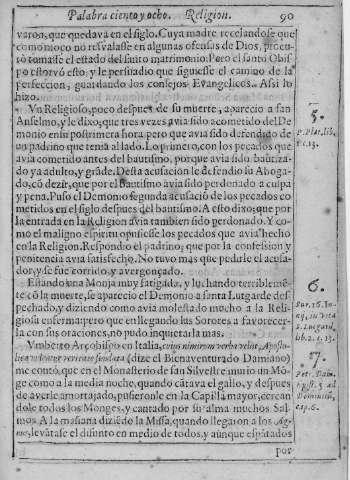 Palabra ciento y ocho. Religion. 90
varon, que quedava en el siglo. Cuya madre recelandose que
como moço no resvalasse en algunas ofensas de Dios, procu-
rò tomasse el estado del santo matrimonio. Pero el santo Obis-
po estorvó esto, y le persuadio que siguiesse el camino de la
perfeccion, guardando los consejos Evangelicos. Assi lo
hizo.
Vn Religioso, poco despues de su muerte, aparecio a san
Anselmo, y le dixo, que tres vezes avia sido acometido del De
monio en su postrimera hora pero que avia sido defendido de
un padrino que tenia al lado. Lo primero, con los pecados que
avia cometido antes del bautismo, porque avia sido bautiza-
do ya adulto, y gràde. Desta acusacion le defendio su Aboga-
do, cõ dezir, que por el bautismo avia sido perdonado a culpa
y pena. Puso el Demonio segunda acusaciõ de los pecados co
metidos en el siglo despues del bautismo. A esto dixo, que por
la entrada en la Religion avia tambien sido perdonado. Y co-
mo el maligno espiritu opusiesse los pecados que avia hecho
en la Religion. Respondio el padrino, que por la confession y
penitencia avia satisfecho. No tuvo mas que pedirle el acusa-
dor, y se fue corrido, y avergonçado.
Estando una Monja muy fatigada, y luchando terribleme-
te cõ la muerte, se aparecio el Demonio a santa Lutgarde des
pechado, y diziendo como avia molestado mucho a la Reli-
giosa enferma: pero que en llegando las Sorores a favorecer-
la con sus oraciones, no pudo inquietarla mas.
Vmberto Arçobispo en Italia, cujus nimirum verba velut, Aposto-
lica videntur veritate fundata (dize el Bienaventurado Damiano)
me contò, que en el Monasterio de san Silvestre murio un Mõ-
ge como a la media noche, quando cãtava el gallo, y despues
de averle amortajado, pusieronle en la Capilla mayor, cercan
dole todos los Monges, y cantado por su alma muchos Sal-
mos. A la mañana diziẽdo la Missa, quando llegaron a los Ag-
nus, levãtase el difunto en medio de todos, y aunque espãtados
por
5.
P. Plat. lib.
1. c. 33.
6.
Sur. 16. Iu-
nij, in vita
S. Lutgard.
lib. 2. c. 13.
7.
Pet. Dam.
epist. 5. ad
Dominicũ,
cap. 6.